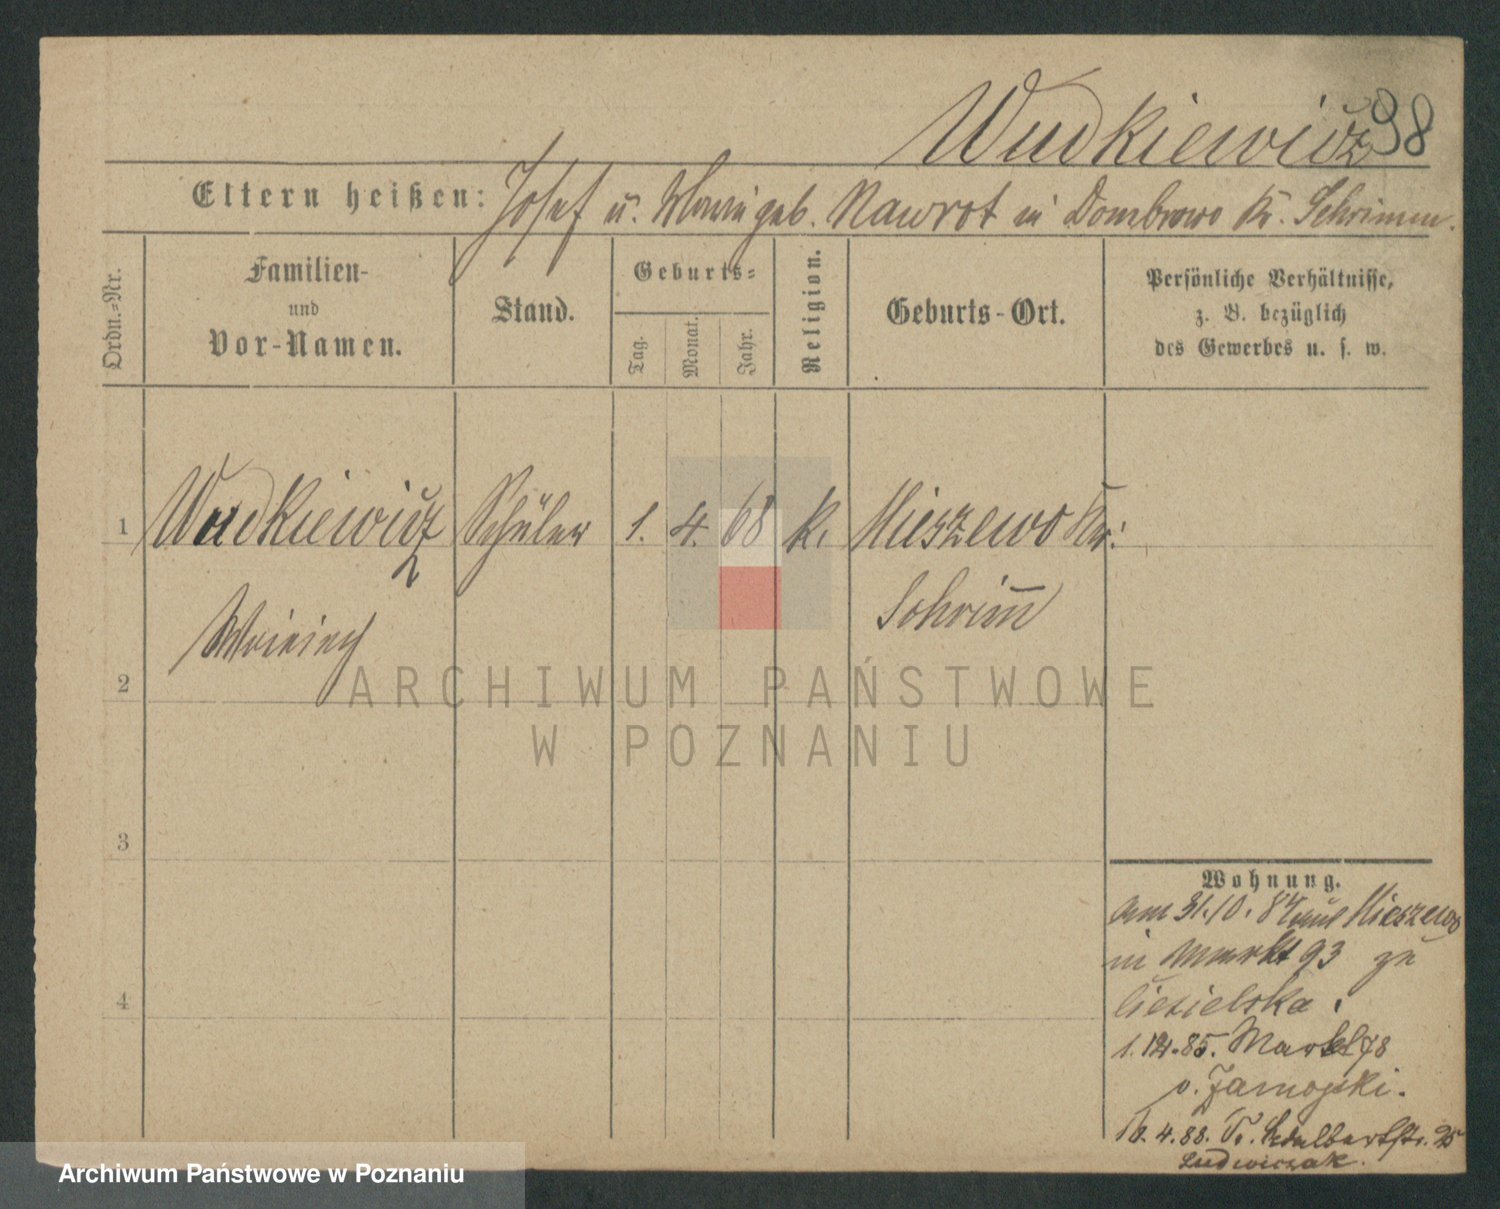 Wudkiewicz 98
Eltern heißen: Josef u. Marie geb. Nawrot in Dombrowo Kr. Schrimm.
Ordn.-Nr.
Familien-
und
Vor-Namen.
Stand.
Geburts-
Tag.
Monat.
Jahr.
Religion.
Geburts-Ort.
Persönliche Verhältnisse,
z. B. bezüglich
des Gewerbes u. s. w.
1 Wudkiewicz Schüler 1. 4. 68 K. Mieszewo Kr:
Schrimm
2
3
4
ARCHIWUM PAŃSTWOWE
W POZNANIU
Wohnung.
am 31.10. 84 aus Mieszewo
in Markt 93 zu
1.12.85. Markt 78
v. Zamojski.
18.4.88. Adalbertstr. 25
Ludwiczak.
Archiwum Państwowe w Poznaniu